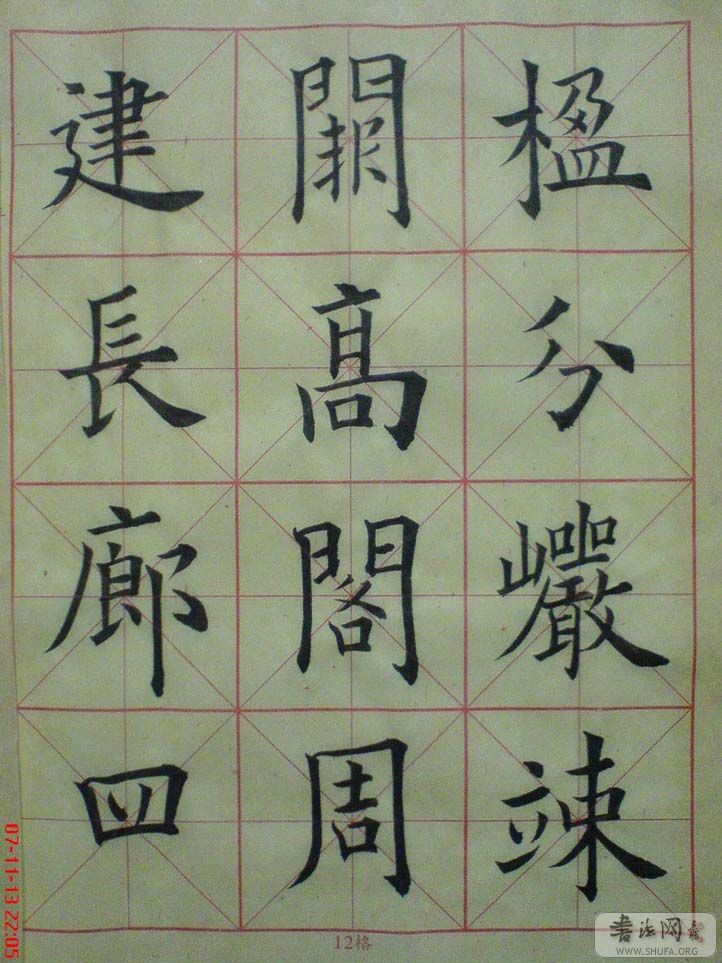 楹分巖竦
闕髙閣周
建長廊四
12格
07-11-13 22:05
书法网
WWW.SHUFA.ORG